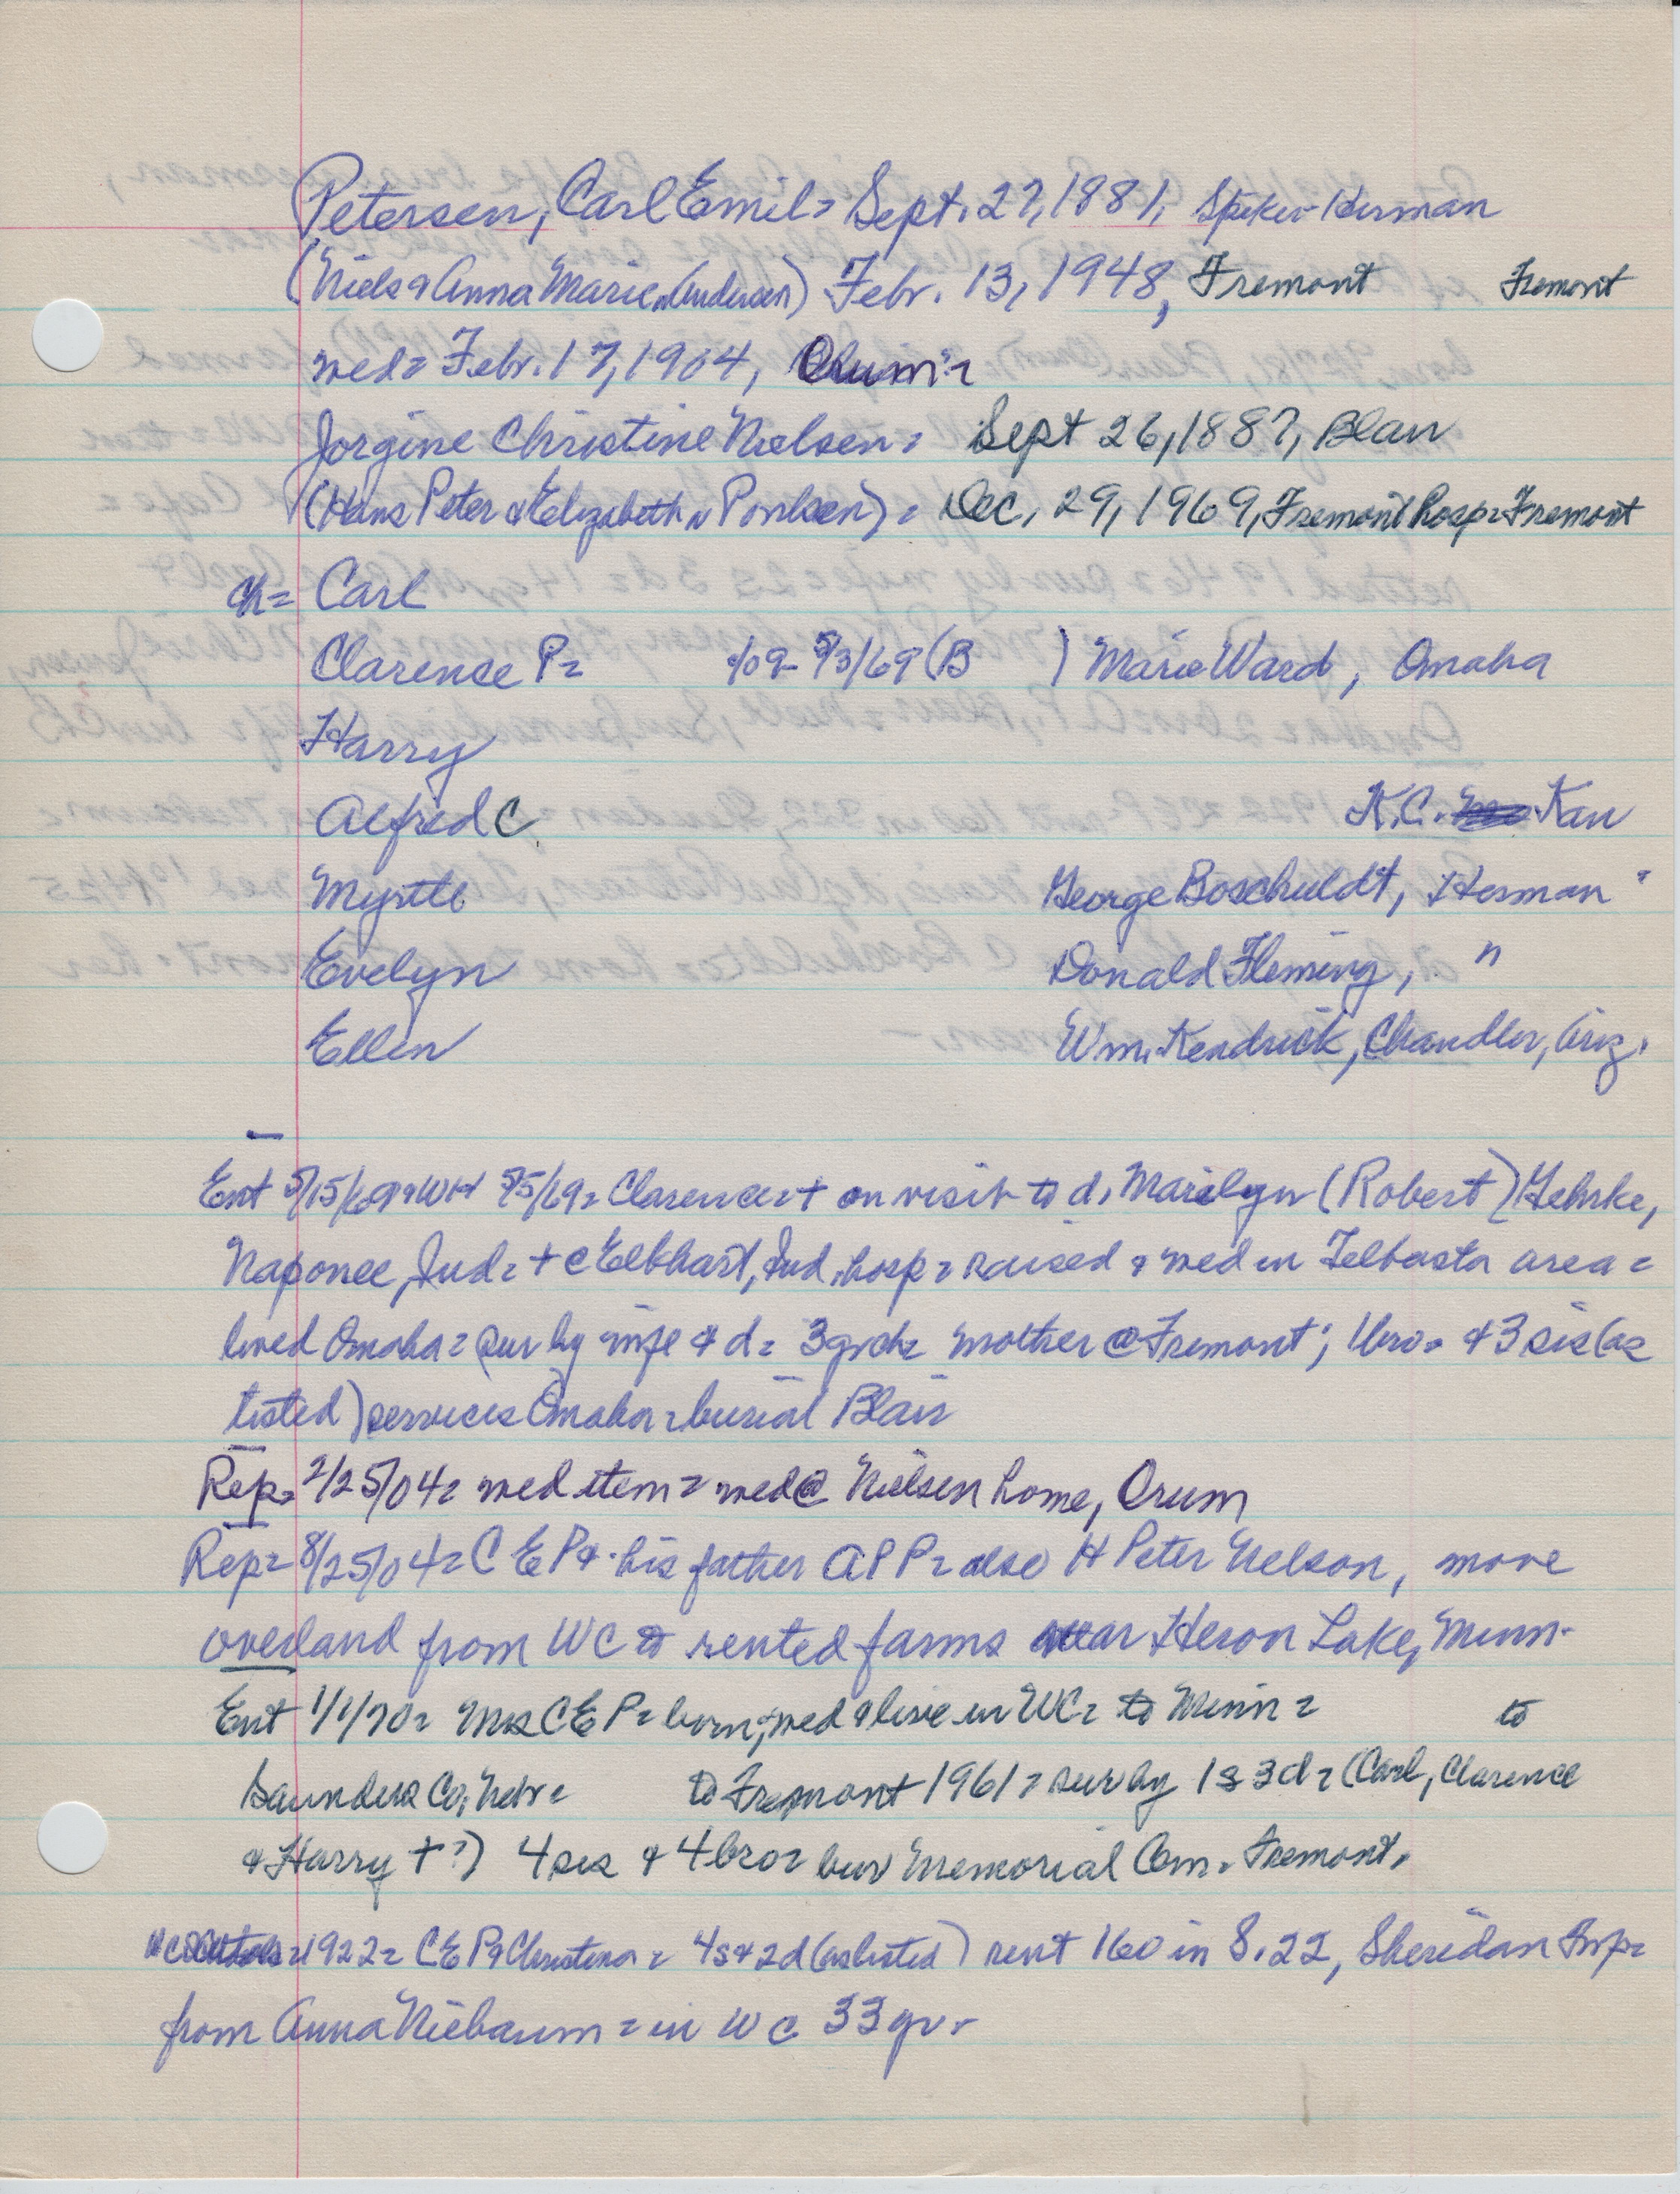 Petersen, Carl Emil = Sept. 27, 1881, Spiker-Herman
(Niels & Anna Marie n Andersen) Febr. 13, 1948, Fremont Fremont
wed = Febr. 17, 1904, Orum =
Jorgine Christine Nielsen = Sept 26, 1887, Blair
(Hans Peter & Elizabeth n Poulsen) = Dec. 29, 1969, Fremont hosp = Fremont
ch = Carl
Clarence P = /09 - 5/3/69 (B ) Marie Ward, Omaha
Harry
Alfred C. K.C. Kan
Myrtle George Boschuldt, Herman
Evelyn Donald Fleming, "
Ellen Wm. Kendrick, Chandler, Ariz.
Ent 5/15/69 & WH 5/5/69 = Clarence = + on visit to d. Marilyn (Robert) Gehrke,
Naponee, Ind = + @ Elkhart, Ind. hosp = raised & wed in Telbasta area =
lived Omaha = sur by wife & d = 3 grch = mother @ Fremont; 1 bro = & 3 sis (as
listed) services Omaha = burial Blair
Rep = 2/25/04 = wed item = wed @ Nielsen home, Orum
Rep = 8/25/04 = C E P & his father A P P = also H Peter Nelson, move
overland from WC to rented farms near Heron Lake, Minn.
Ent 1/1/70 = Mrs C E P = born, wed & live in WC = to Minn = to
Saunders Co, Nebr = to Fremont 1961 = sur by 1 s 3 d = (Carl, Clarence
& Harry + ?) 4 sis & 4 bro = bur Memorial Cem. Fremont.
1922 = C E P & Christina = 4 s & 2 d (as listed) rent 160 in S. 22, Sheridan Twp =
from Anna Niebaum = in WC 33 yr.